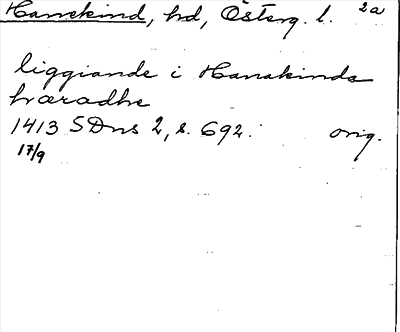 Hanekind, hd, Österg. l. 2a
liggiande i Hanakinds
hæradhe
1413 SDns 2, s. 692. orig.
17/9